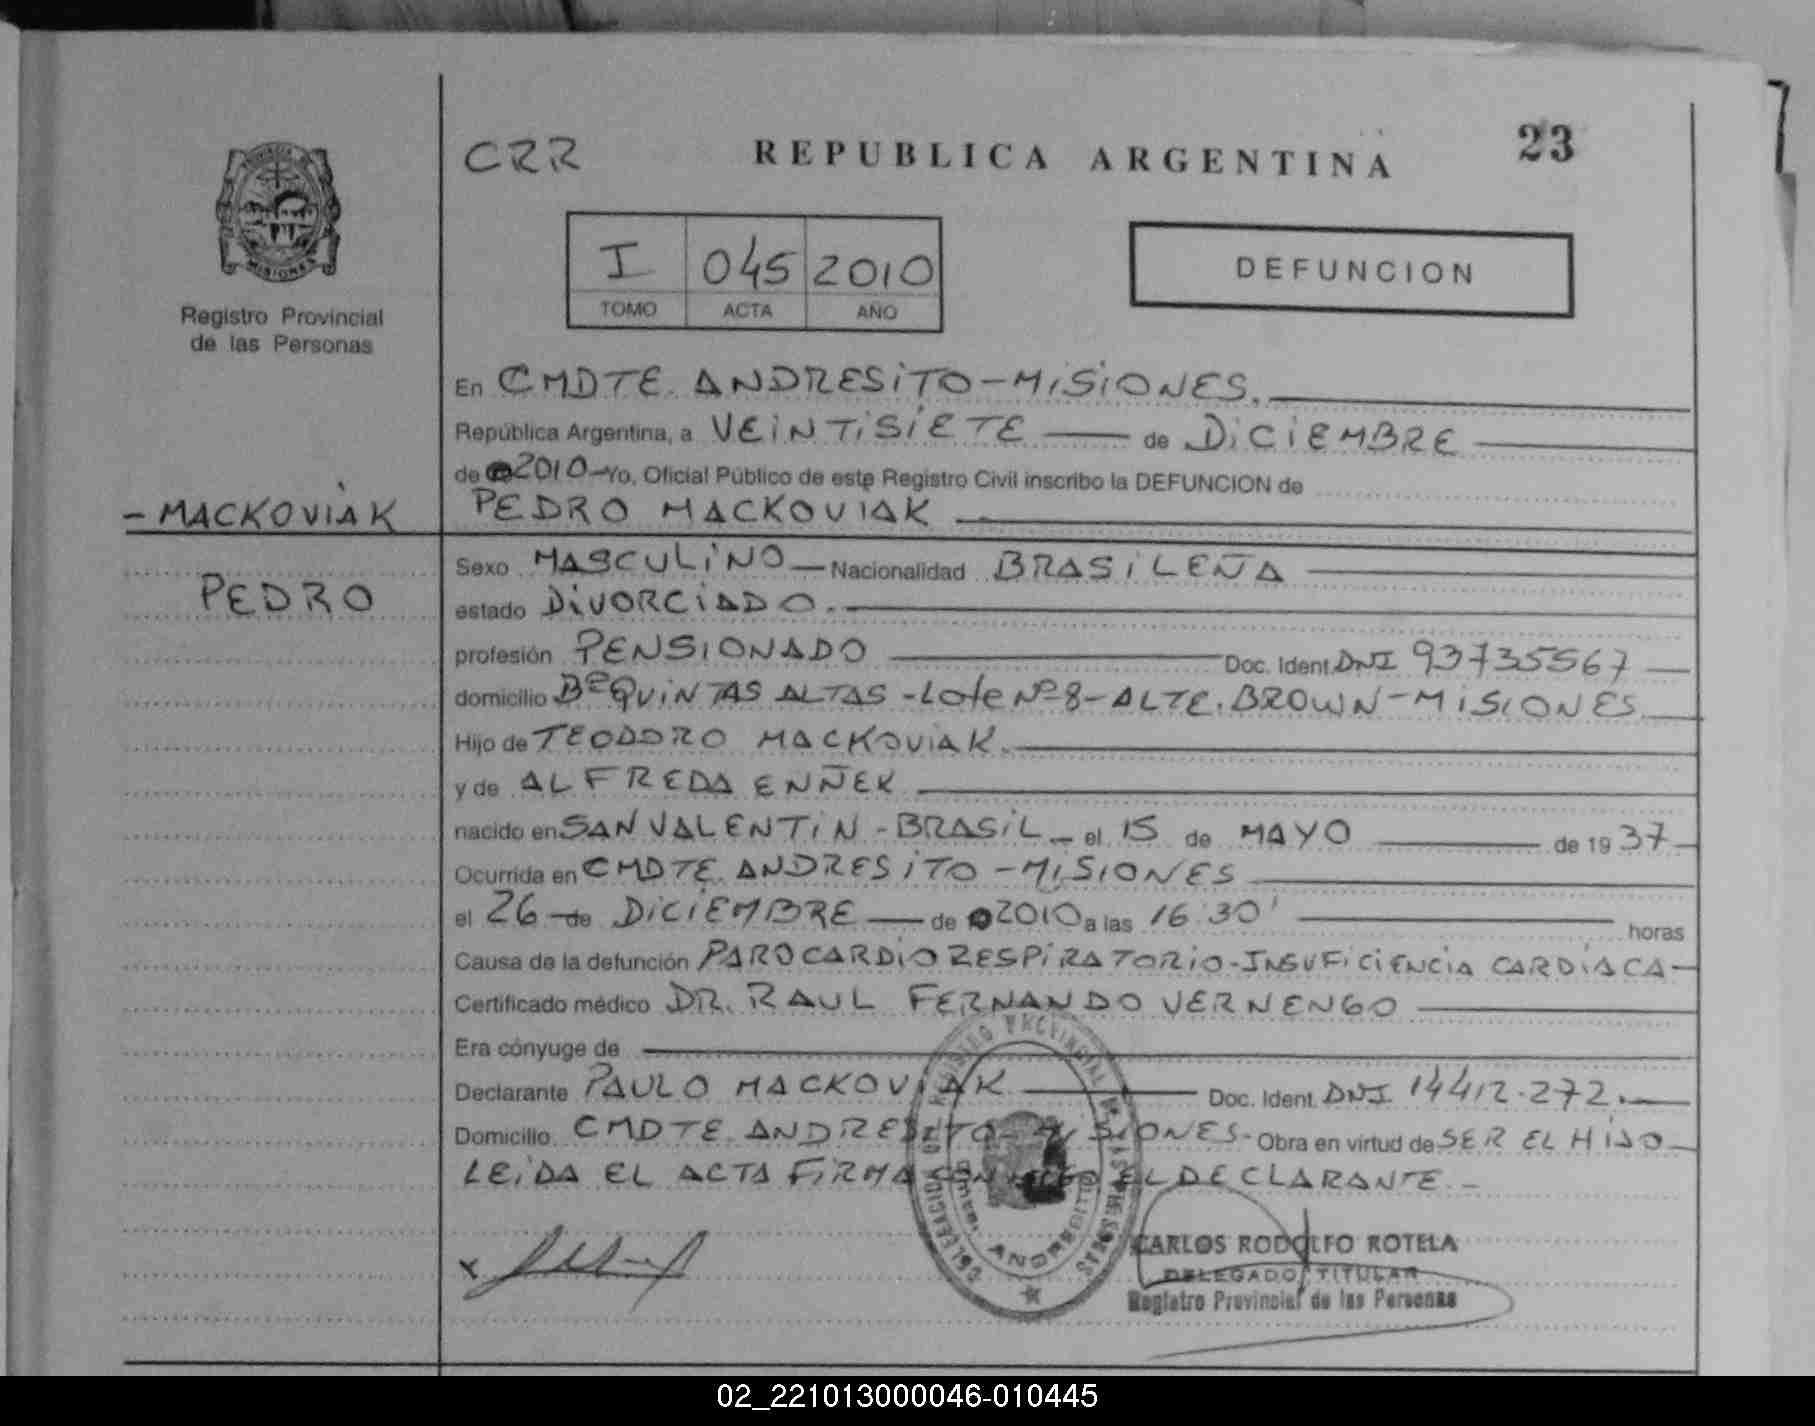 CRR
REPUBLICA ARGENTINA
23
MISIONES
Registro Provincial
de las Personas
I 045 2010
TOMO ACTA AÑO
DEFUNCION
En CMDTE. ANDRESiTO-MiSiONES.
República Argentina, a VEiNTiSiETE de DiCiEMBRE
de 2010-Yo, Oficial Público de este Registro Civil inscribo la DEFUNCION de
- MACKOVIAK
PEDRO MACKOVIAK
PEDRO
Sexo MASCULiNO - Nacionalidad BRASiLEÑA
estado DiVORCiADO.
profesión PENSIONADO Doc. Ident. DNI 93735567
domicilio Bº QUiNTAS ALTAS - Lote Nº 8 - ALTE. BROWN - MiSiONES
Hijo de TEODORO MACKOVIAK.
y de ALFREDA EÑÑEK
nacido en SAN VALENTiN - BRASiL - el 15 de MAYO de 1937
Ocurrida en CMDTE. ANDRESiTO - MiSiONES
el 26 de DiCiEMBRE de 2010 a las 16:30' horas
Causa de la defunción PAROCARDiORESPiRATORiO - INSUFiCiENCiA CARDiACA
Certificado médico DR. RAUL FERNANDO VERNENGO
Era cónyuge de
Declarante PAULO MACKOVIAK Doc. Ident. DNI 14412.272.
Domicilio CMDTE. ANDRESiTO - MiSiONES - Obra en virtud de SER EL HiJO
LEiDA EL ACTA FiRMA CONMiGO EL DECLARANTE -
DELEGACION REGISTRO PROVINCIAL DE LAS PERSONAS
ANDRESITO
x
CARLOS RODOLFO ROTELA
DELEGADO TITULAR
Registro Provincial de las Personas
02_221013000046-010445